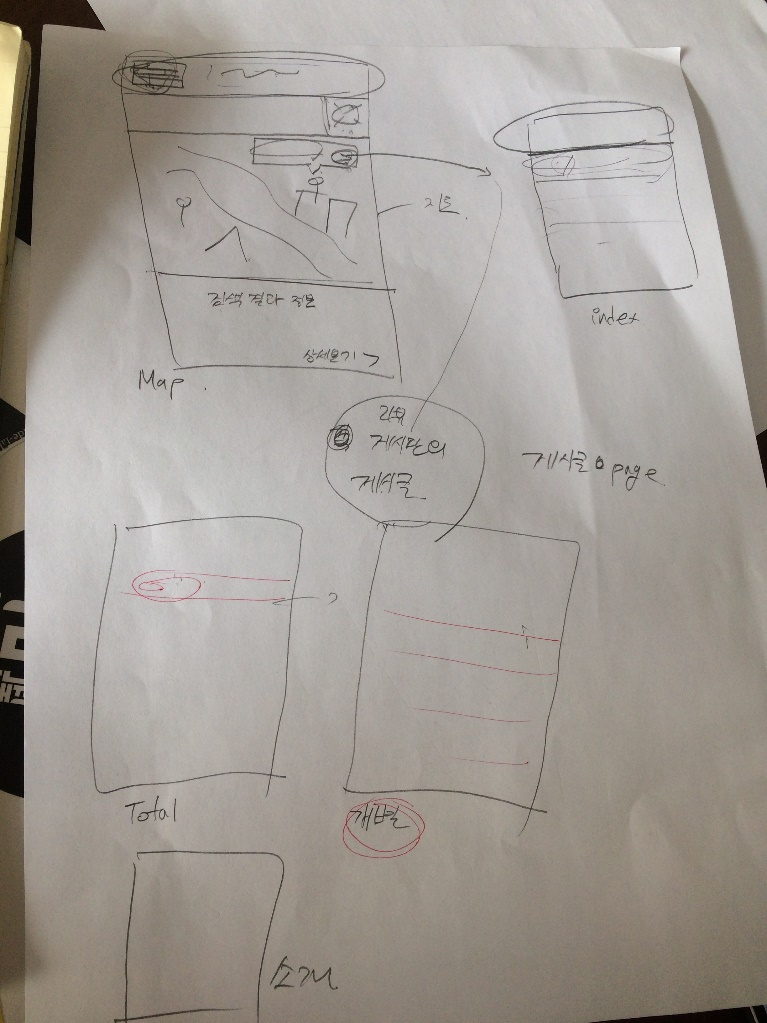 지도
검색 결과 정보
상세보기 >
Map.
index
각
게시판의
게시글
게시글 page
Total
개별
소개